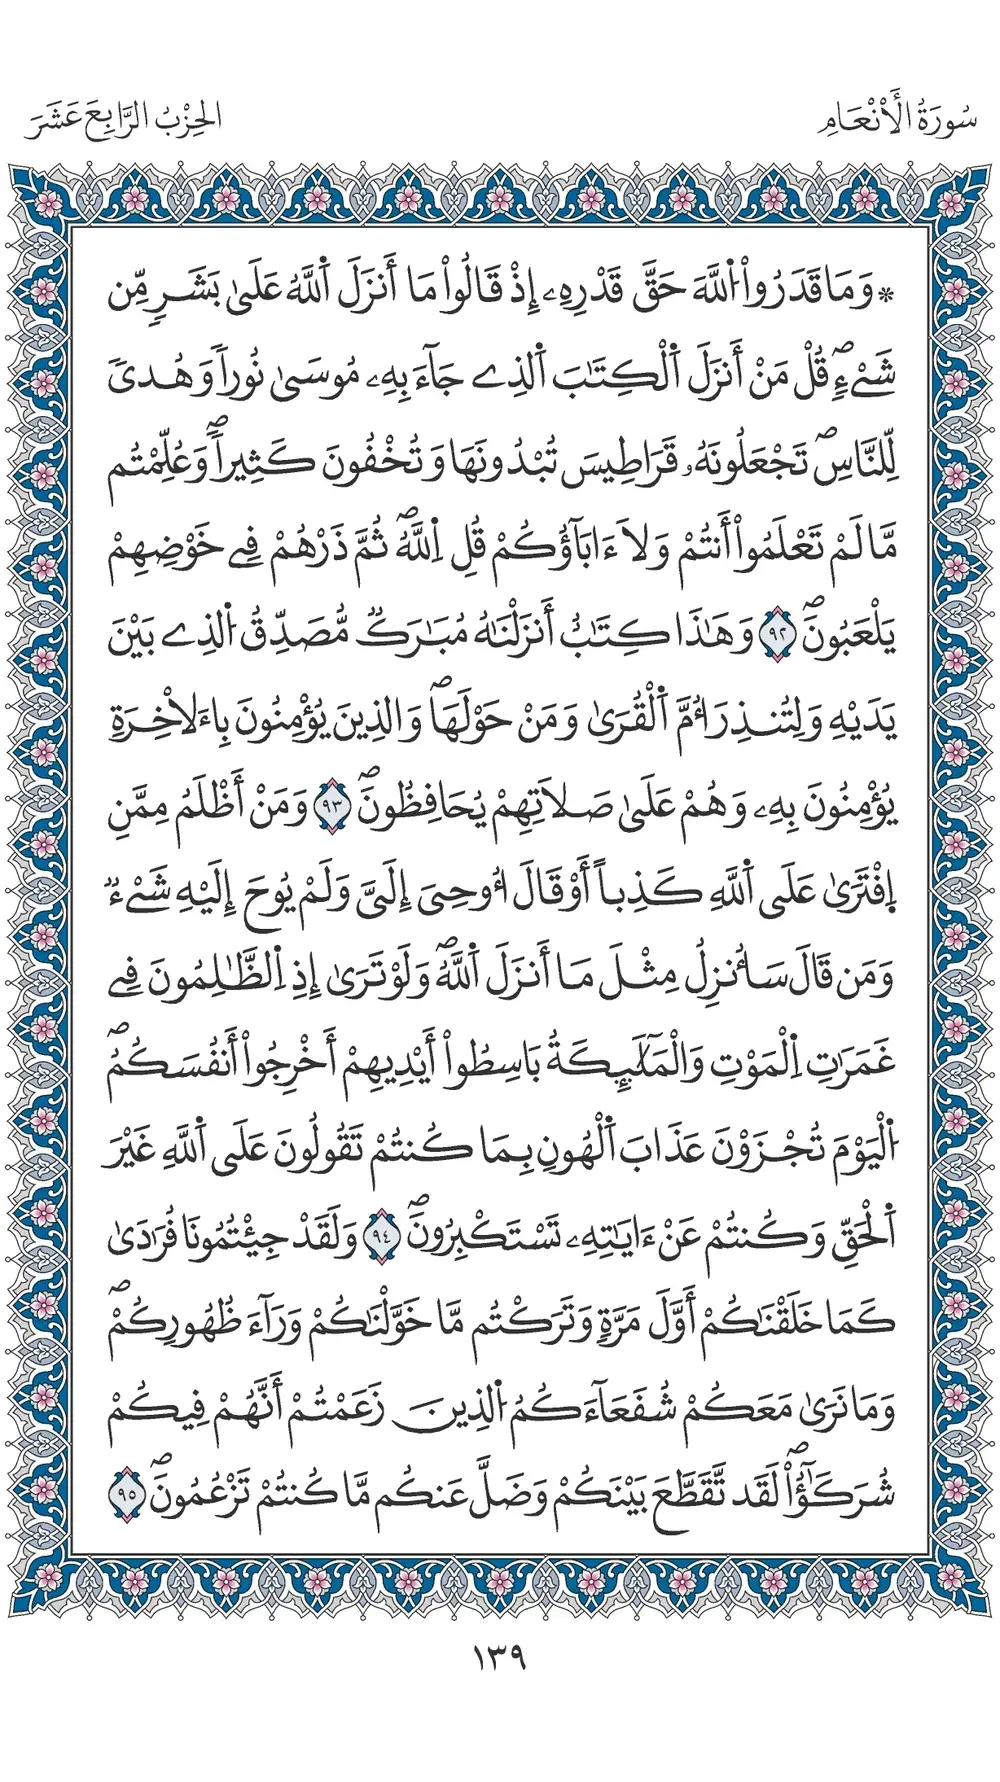 سُورَةُ الْأَنْعَامِ
الحِزْبُ الرَّابِعَ عَشَرَ
* وَمَا قَدَرُواْ اُ۬للَّهَ حَقَّ قَدْرِهِۦ إِذْ قَالُواْ مَا أَنزَلَ اَ۬للَّهُ عَلَىٰ بَشَرٖ مِّن
شَےْءٖۖ قُلْ مَنْ أَنزَلَ اَ۬لْكِتَٰبَ اَ۬لذِے جَآءَ بِهِۦ مُوسَىٰ نُوراٗ وَهُدىٗ
لِّلنَّاسِۖ تَجْعَلُونَهُۥ قَرَاطِيسَ تُبْدُونَهَا وَتُخْفُونَ كَثِيراٗۖ وَعُلِّمْتُم
مَّا لَمْ تَعْلَمُواْ أَنتُمْ وَلَا ءَابَآؤُكُمْ قُلِ اِ۬للَّهُۖ ثُمَّ ذَرْهُمْ فِے خَوْضِهِمْ
يَلْعَبُونَۖ ٩٢ وَهَٰذَا كِتَٰبٌ أَنزَلْنَٰهُ مُبَٰرَكٞ مُّصَدِّقُ اُ۬لذِے بَيْنَ
يَدَيْهِ وَلِتُنذِرَ أُمَّ اَ۬لْقُرَىٰ وَمَنْ حَوْلَهَاۖ وَالذِينَ يُؤْمِنُونَ بِاءَلَاخِرَةِ
يُؤْمِنُونَ بِهِۦ وَهُمْ عَلَىٰ صَلَاتِهِمْ يُحَافِظُونَۖ ٩٣ وَمَنْ أَظْلَمُ مِمَّنِ
اِ۪فْتَرَىٰ عَلَى اَ۬للَّهِ كَذِباً أَوْ قَالَ أُوحِىَ إِلَىَّ وَلَمْ يُوحَ إِلَيْهِ شَےْءٞ
وَمَن قَالَ سَأُنزِلُ مِثْلَ مَا أَنزَلَ اَ۬للَّهُۖ وَلَوْ تَرَىٰ إِذِ اِ۬لظَّٰلِمُونَ فِے
غَمَرَٰتِ اِ۬لْمَوْتِ وَالْمَلَٰٓئِكَةُ بَاسِطُواْ أَيْدِيهِمْ أَخْرِجُواْ أَنفُسَكُمُۖ
اُ۬لْيَوْمَ تُجْزَوْنَ عَذَابَ اَ۬لْهُونِ بِمَا كُنتُمْ تَقُولُونَ عَلَى اَ۬للَّهِ غَيْرَ
اَ۬لْحَقِّ وَكُنتُمْ عَنْ ءَايَٰتِهِۦ تَسْتَكْبِرُونَۖ ٩٤ وَلَقَدْ جِئْتُمُونَا فُرَٰدَىٰ
كَمَا خَلَقْنَٰكُمْ أَوَّلَ مَرَّةٖ وَتَرَكْتُم مَّا خَوَّلْنَٰكُمْ وَرَآءَ ظُهُورِكُمْۖ
وَمَا نَرَىٰ مَعَكُمْ شُفَعَآءَكُمُ اُ۬لذِينَ زَعَمْتُمْ أَنَّهُمْ فِيكُمْ
شُرَكَٰٓؤُاْۖ لَقَد تَّقَطَّعَ بَيْنَكُمْ وَضَلَّ عَنكُم مَّا كُنتُمْ تَزْعُمُونَۖ ٩٥
١٣٩